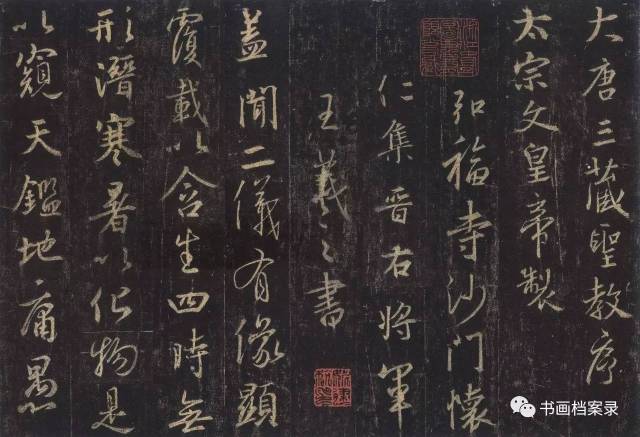 大唐三藏聖教序
太宗文皇帝製
弘福寺沙門懷
仁集晉右將軍
王羲之書
蓋聞二儀有像顯
覆載以含生四時無
形潛寒暑以化物是
以窺天鑑地庸愚
书画档案录